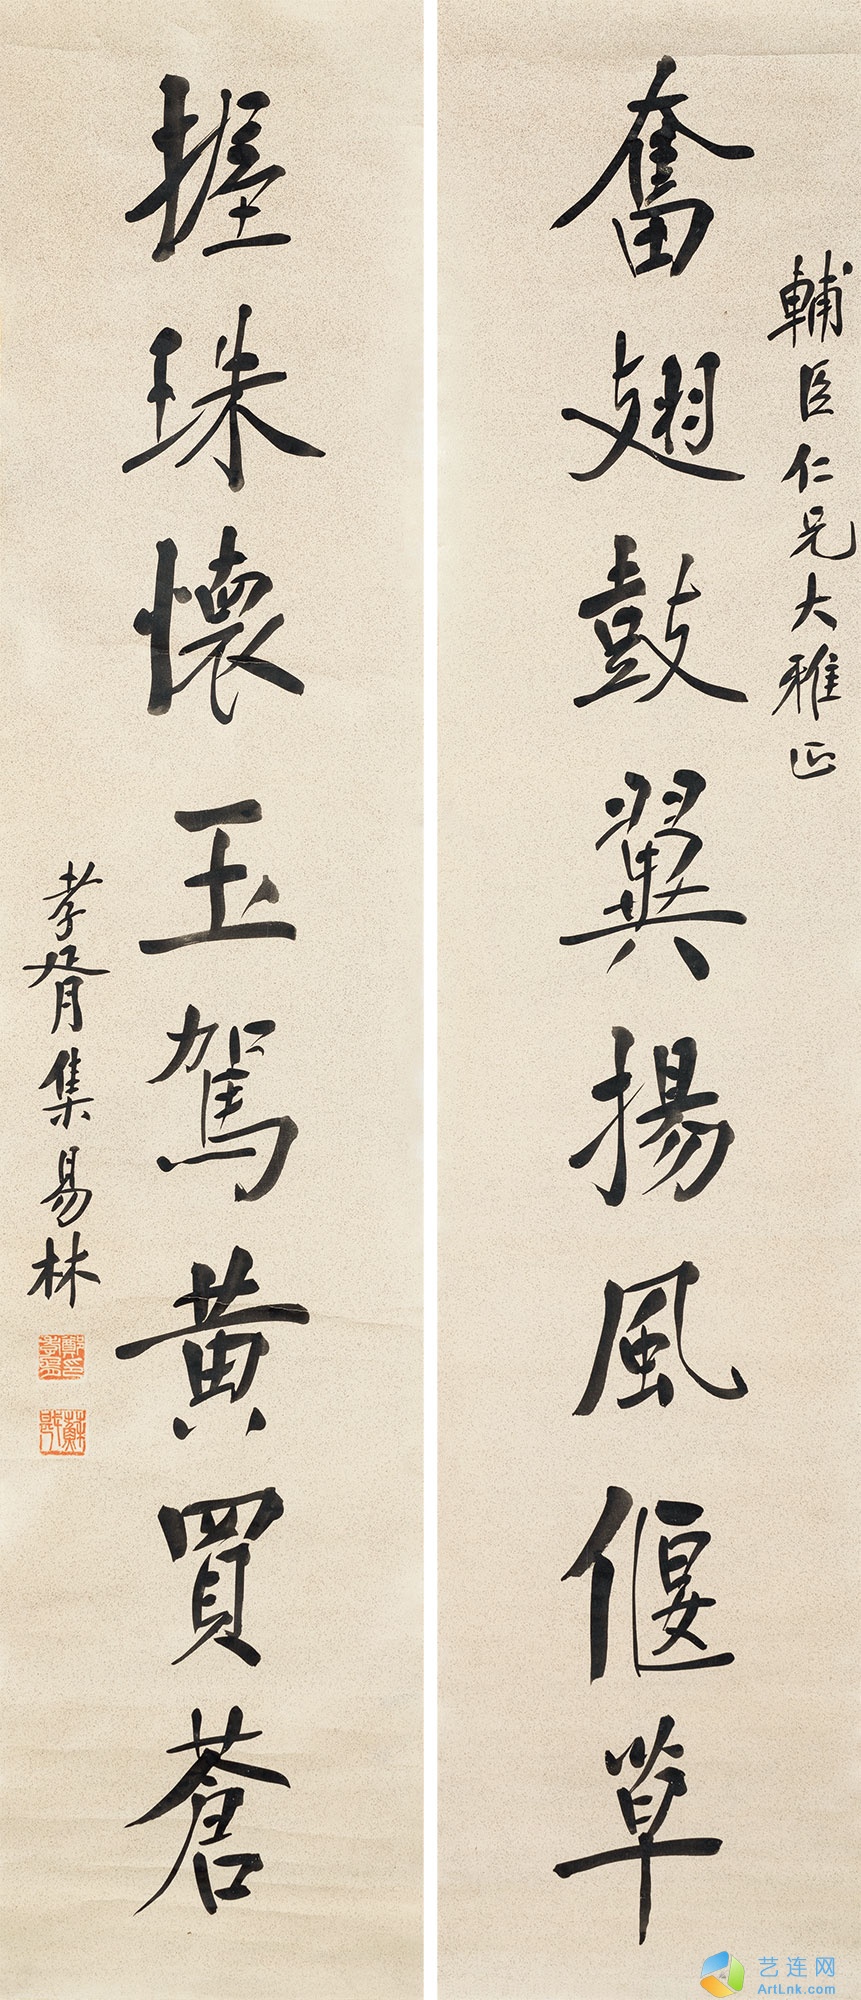 輔臣仁兄大雅正
奮翅鼓翼揚風偃草
握珠懷玉駕黄買蒼
孝胥集易林
鄭孝胥印
蘇戡
艺连网
ArtLnk.com